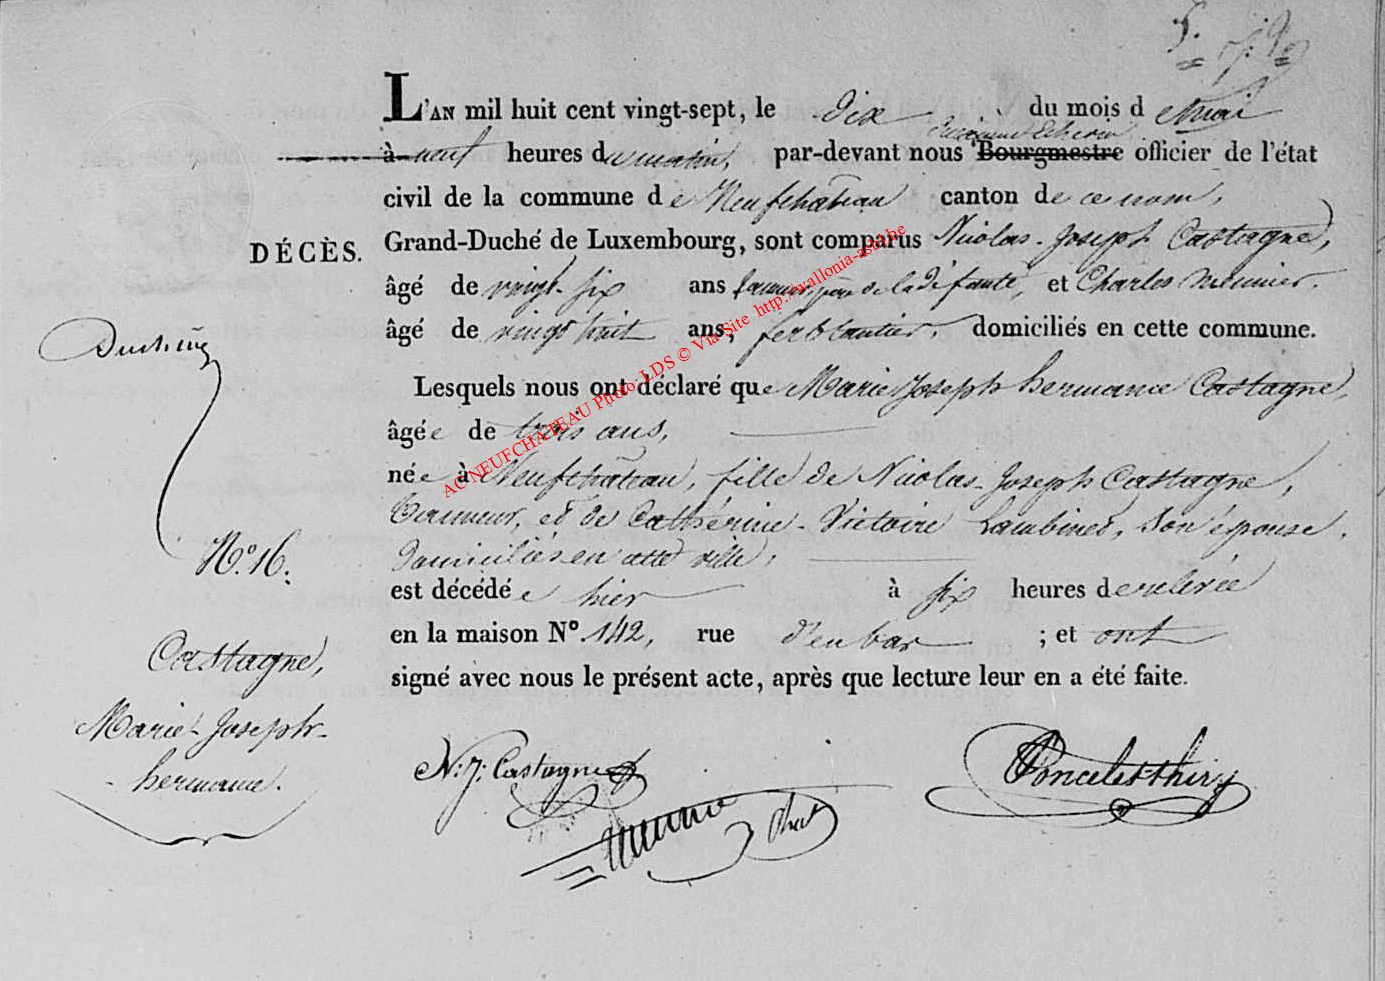 L'AN mil huit cent vingt-sept, le dix du mois de Mai
à neuf heures du matin, par-devant nous Bourgmestre officier de l'état
civil de la commune de Neufchâteau canton de ce nom,
DÉCÈS.
Grand-Duché de Luxembourg, sont comparus Nicolas-Joseph Castagne,
âgé de vingt-six ans tanneur, père de la défunte, et Charles Meunier,
âgé de vingt huit ans, ferblantier, domiciliés en cette commune.
Lesquels nous ont déclaré que Marie-Joseph hermance Castagne,
âgée de trois ans,
née à Neufchâteau, fille de Nicolas-Joseph Castagne,
Tanneur, et de Cathérine-Victoire Lambinet, son épouse,
domiciliés en cette ville,
est décédée hier à six heures de relevée
en la maison N° 142, rue d'en bas ; et ont
signé avec nous le présent acte, après que lecture leur en a été faite.
N° 16.
Castagne,
Marie-Joseph-
hermance.
N: J: Castagne
Poncelet thiry
AC NEUFCHATEAU Photo: LDS © Via Site http://wallonia-asbl.be